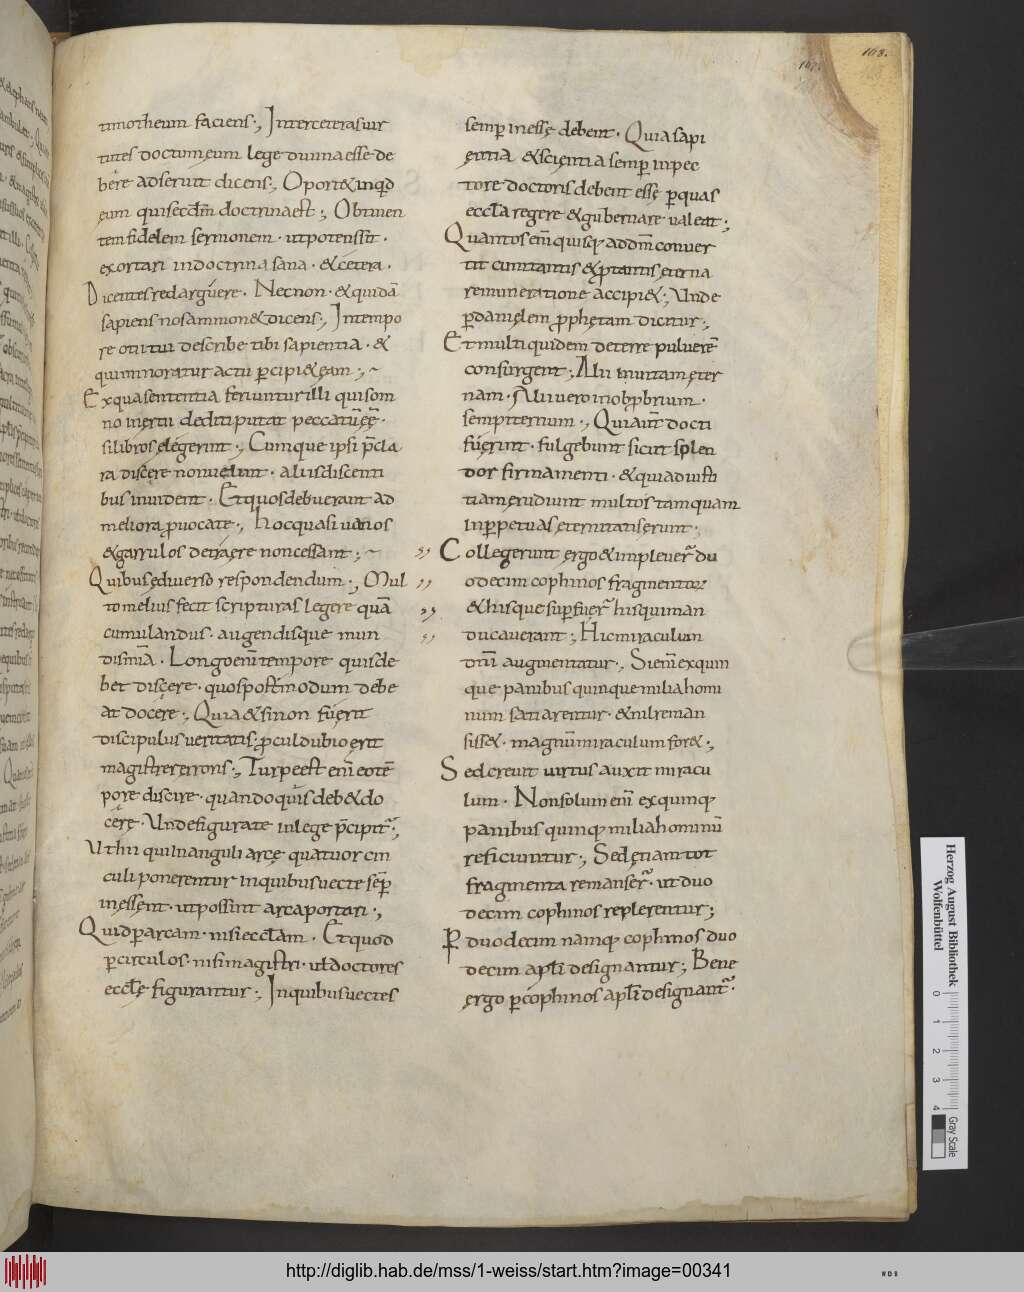 168.
167.
timotheum faciens ·, Interceterasuir
tutes doctum eum lege diuina esse de
bere adseruit dicens ·, Oport&inqd
eum qui secdm doctrina est ·, Obtinen
tem fidelem sermonem · ut potens sit ·
exortari in doctrina sana · &cetera ·
Dicentes redarguere · Nec non · & quida
sapiens nos ammon& dicens ·, In tempo
re otii tui describe tibi sapientia · &
qui minoratur actu pcipi& eam ·, ~
Ex qua sententia feriuntur illi qui som
no inerti dediti putat peccatu ee ·
si libros elegerint ·, Cumque ipsi pcla
ra discere noluerint · aliis discenti
bus inuident · Et quos debuerant ad
meliora puocate ·, hoc quasi uanos
& garrulos detraere non cessant ·, ~
Quibus e diuerso respondendum ·, Mul
to melius fecit scripturas legere qua
cumulandus · augendisque mun
dis mia · Longo eni tempore quis de
bet discere · quos postmodum debe
at docere ·, Quia & si non fuerit
discipulus ueritatis · pculdubio erit
magister erroris ·, Turpe est eni eo te
pore discire · quando quis deb& do
cere · Unde figurate in lege pcipit ·,
Ut hii qui in anguli arce quatuor cir
culi ponerentur in quibus uecte semp
inessent · ut possint arca portari ·,
Quid p arcam · nisi eccla m · Et quod
p circulos · nisi magistri · ut doctores
eccle figurantur ·, In quibus uectes
semp in esse debent · Quia sapi
entia & scientia semp in pec
tore doctoris debent esse p quas
eccla regere & gubernare ualeat ;
Quantos eni quisq ad dm conuer
tit
remuneratione accipi& ·, Unde
p danielem pphetam dicitur ·,
Et multi quidem de terre puluere
consurgent ·, Alii in uitam eter
nam · Alii uero in obpbrium ·
sempiternum ·, Qui aut docti
fuerint · fulgebunt sicut splen
dor firmamenti · & qui ad iusti
tiam erudiunt multos tamquam
in perpetuas eternitatis erunt ·
Collegerunt ergo & impleuer du
odecim cophinos fragmentor
& his que supfuer his qui man
ducauerant ·, Hic miraculum
dni augmentatur ·, Si eni ex quin
que panibus quinque milia homi
num satiarentur · & nil reman
siss& · magnu miraculum for& ·,
Sed creuit uirtus auxit miracu
lum · Non solum eni ex quinq
panibus quinq milia hominu
reficiuntur ·, Sed etiam tot
fragmenta remanser · ut duo
decim cophinos replerentur ;
P duodecim namq cophinos duo
decim apli designantur ; Bene
ergo p cophinos apli designant ·
Herzog August Bibliothek
Wolfenbüttel
0 1 2 3 4
Gray Scale
http://diglib.hab.de/mss/1-weiss/start.htm?image=00341